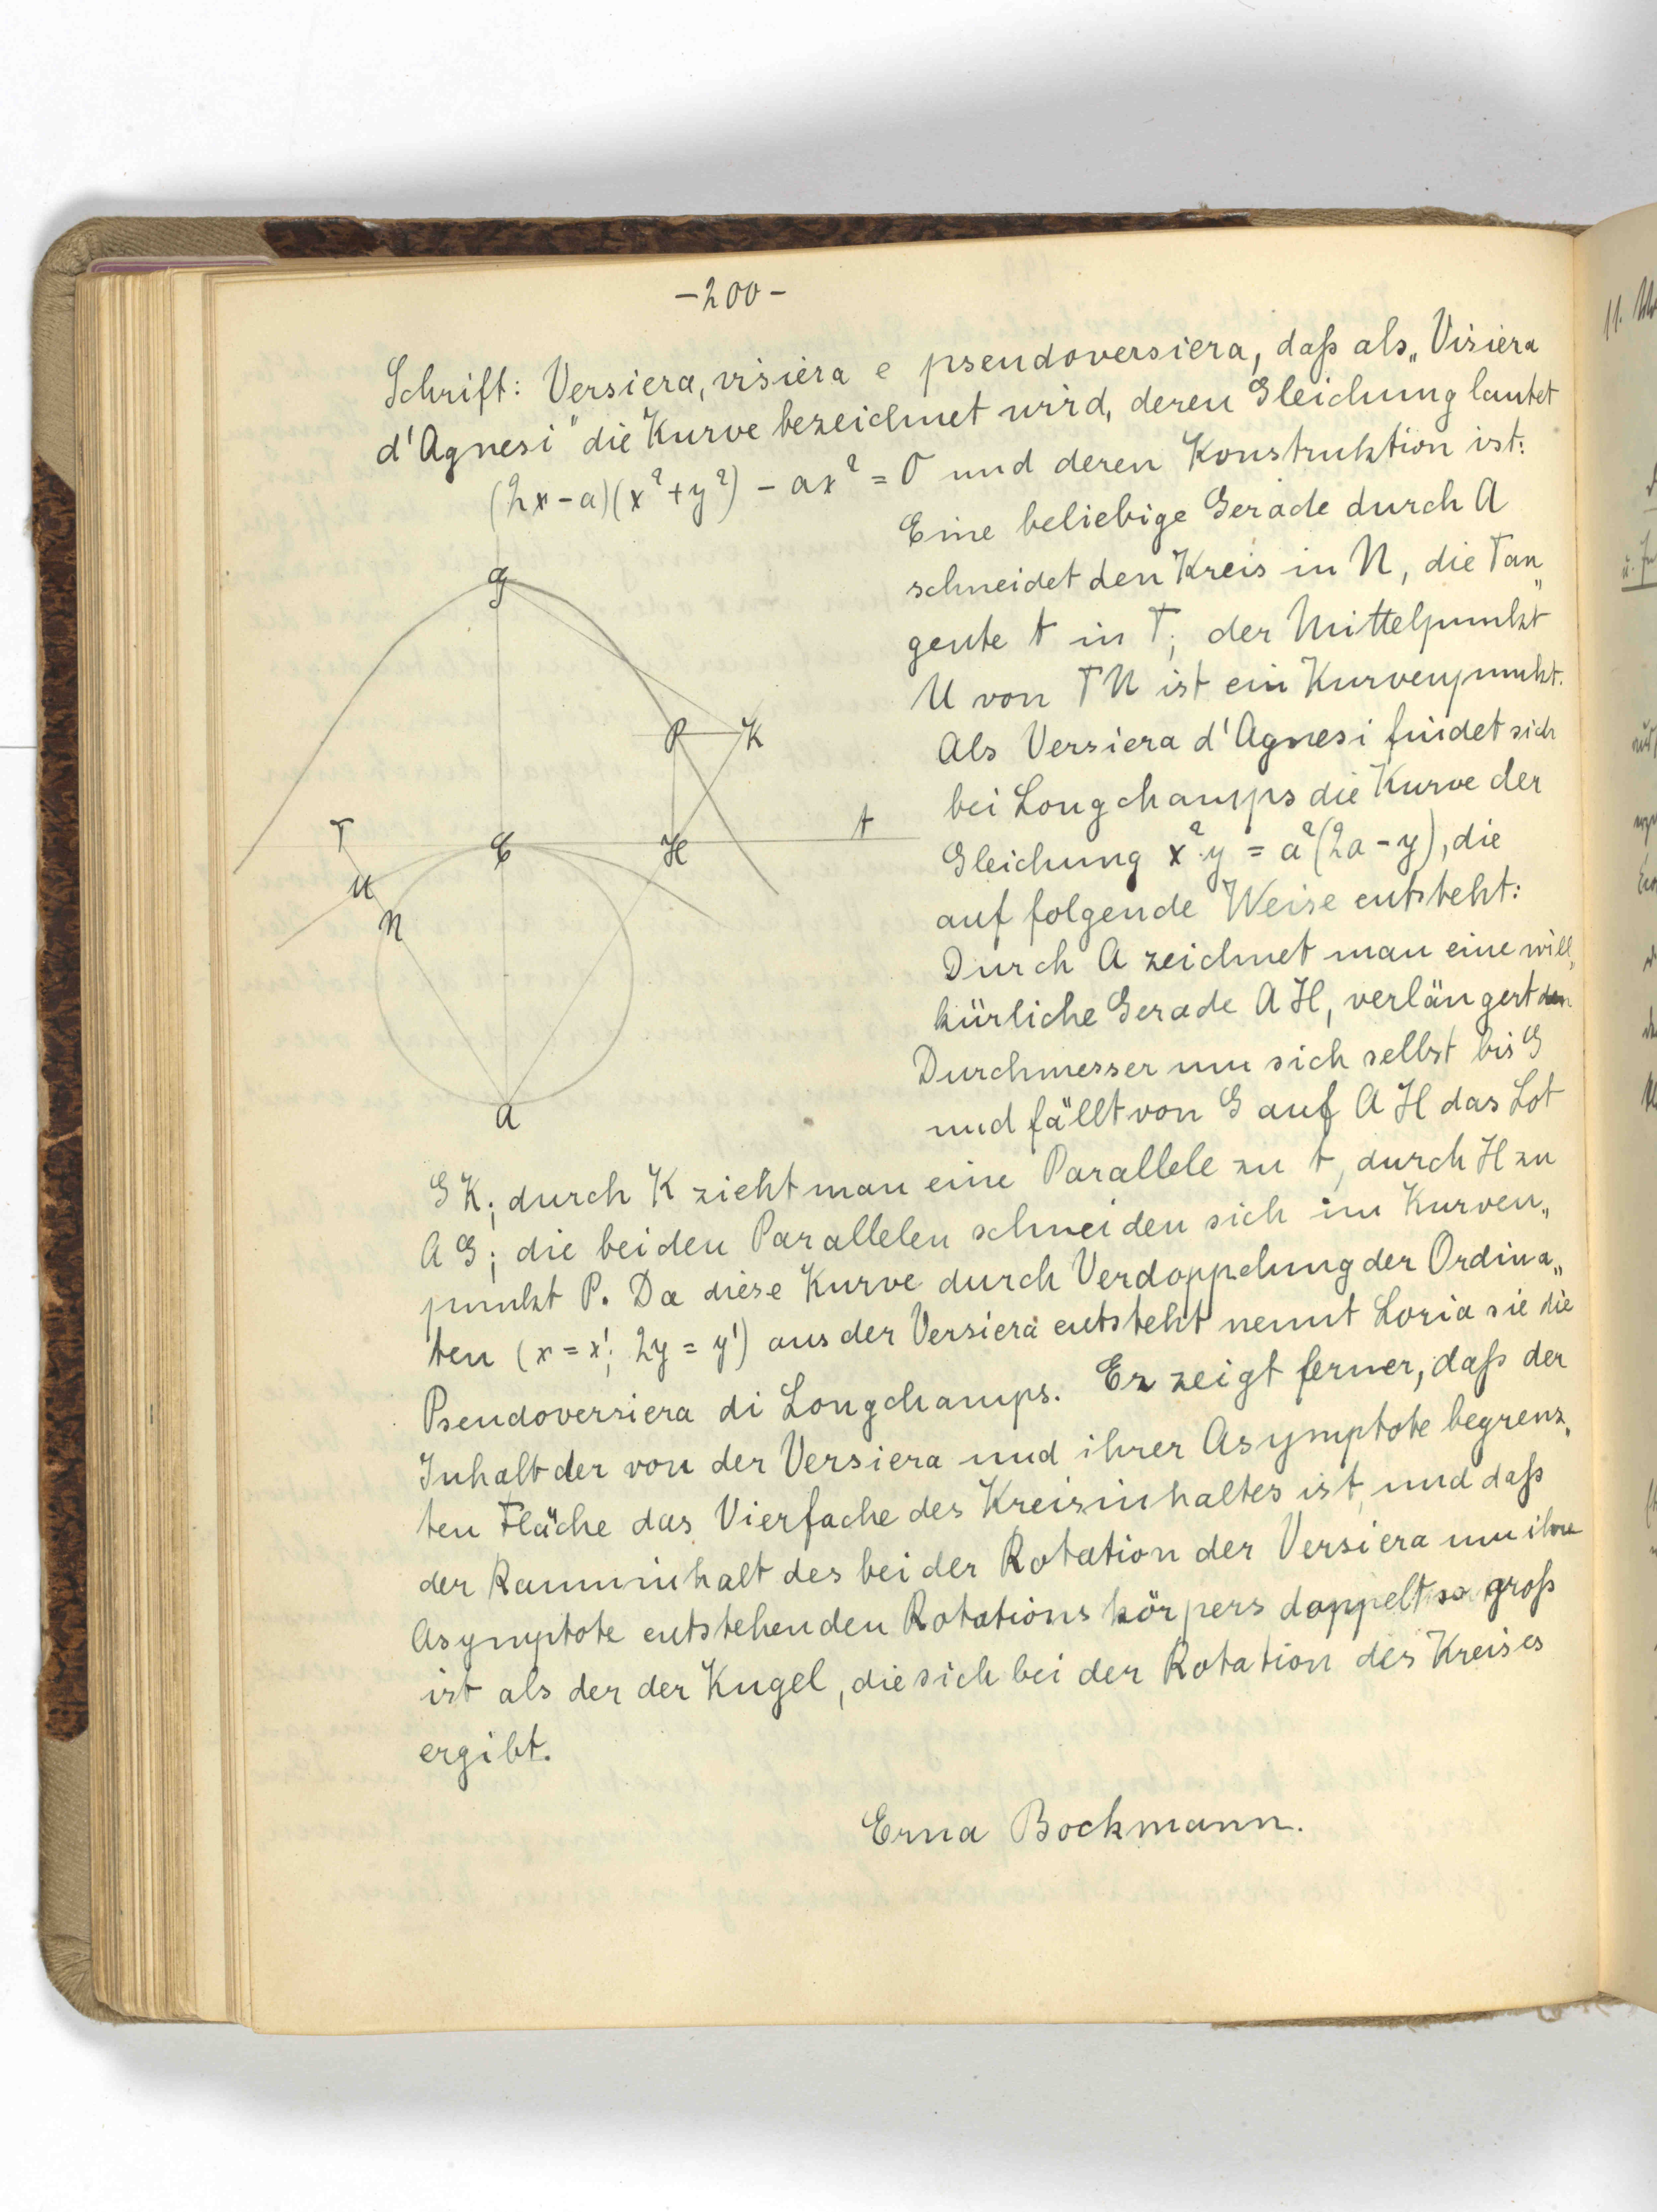 -200-
Schrift: Versiera, visiera e pseudoversiera, daß als „Visiera
d'Agnesi" die Kurve bezeichnet wird, deren Gleichung lautet
(2x-a)(x²+y²) - ax² = 0 und deren Konstruktion ist:
Eine beliebige Gerade durch A
schneidet den Kreis in N, die Tan„
gente t in T; der Mittelpunkt
U von TN ist ein Kurvenpunkt.
Als Versiera d'Agnesi findet sich
bei Longchamps die Kurve der
Gleichung x²·y = a²(2a-y), die
auf folgende Weise entsteht:
Durch A zeichnet man eine will„
kürliche Gerade AH, verlängert den
Durchmesser um sich selbst bis G
und fällt von G auf AH das Lot
GK; durch K zieht man eine Parallele zu t, durch H zu
AG; die beiden Parallelen schneiden sich im Kurven„
punkt P. Da diese Kurve durch Verdoppelung der Ordina„
ten (x = x'; 2y = y') aus der Versiera entsteht nennt Loria sie die
Pseudoversiera di Longchamps. Er zeigt ferner, daß der
Inhalt der von der Versiera und ihrer Asymptote begrenz„
ten Fläche das Vierfache des Kreisinhaltes ist, und daß
der Rauminhalt des bei der Rotation der Versiera um ihre
Asymptote entstehenden Rotationskörpers doppelt so groß
ist als der der Kugel, die sich bei der Rotation des Kreises
ergibt.
Erna Bockmann.
G
P
K
T
E
H
t
U
N
A
11.